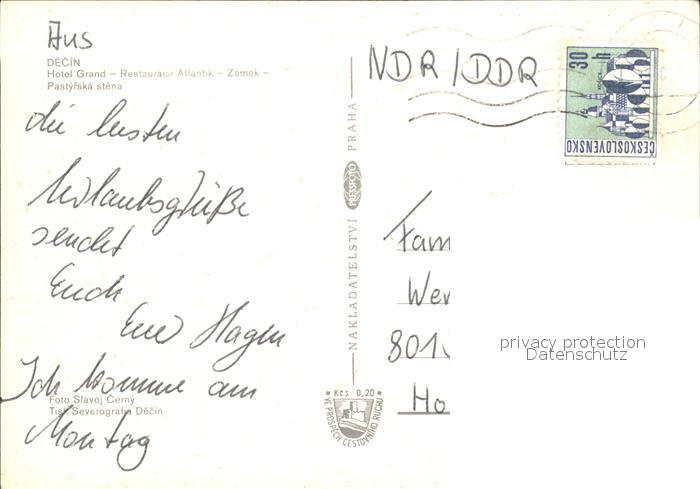 Aus
DĚČÍN
Hotel Grand – Restaurace Atlantik – Zámek –
Pastýřská stěna
die besten
Urlaubsgrüße
sendet
Euch
Euer Hagen
Ich komme am
Foto Slavoj Černý
Tisk Severografia Děčín
Montag
NAKLADATELSTVÍ PRESSFOTO PRAHA
Kčs 0,20
VE PROSPĚCH CESTOVNÍHO RUCHU
NDR/DDR
30 h
ČESKOSLOVENSKO
Fam
Wer
801
Ho
privacy protection
Datenschutz